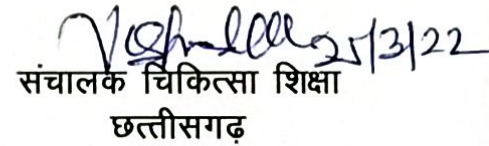 25/3/22
संचालक चिकित्सा शिक्षा
छत्तीसगढ़